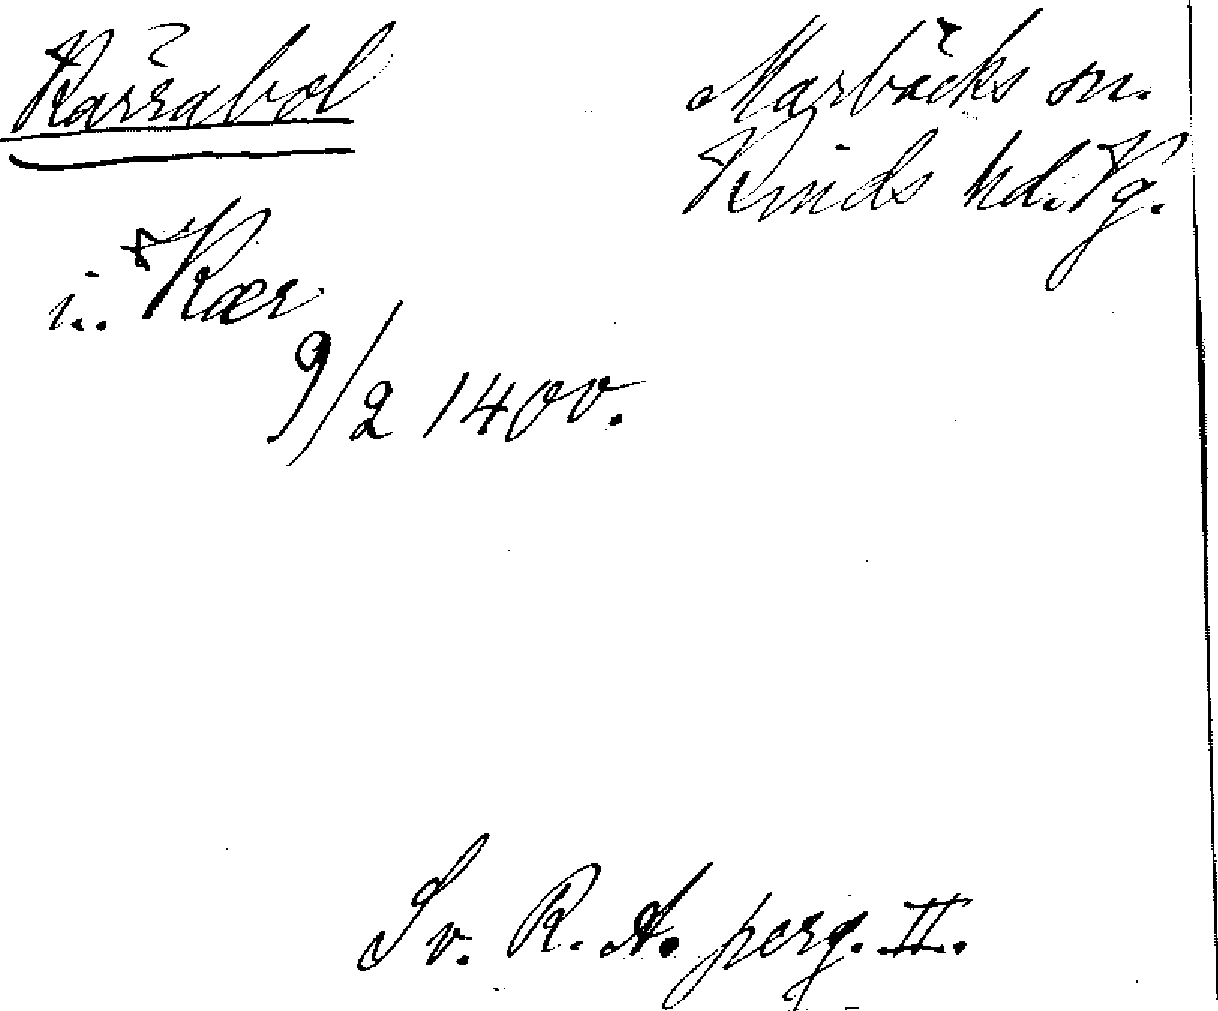 Kärrabol
Marbäcks sn.
Kinds hd. Vg.
i. *Kær
9/2 1400.
Sv. R. A. perg. II.